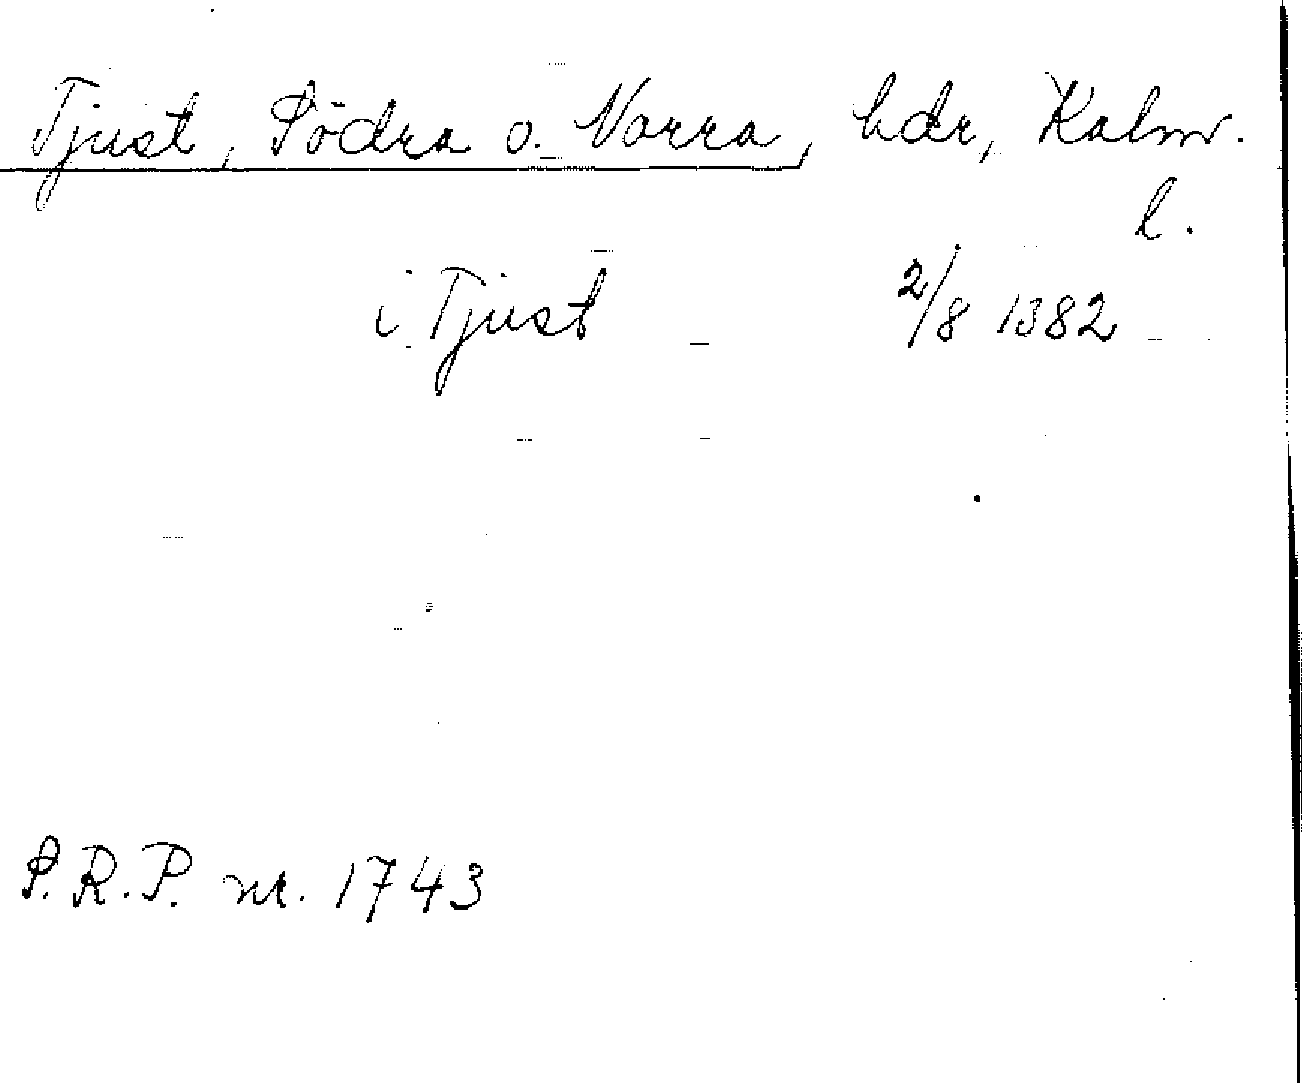 Tjust, Södra o. Norra, hdr, Kalm.
l.
i Tjust 2/8 1382
S.R.P. nr. 1743